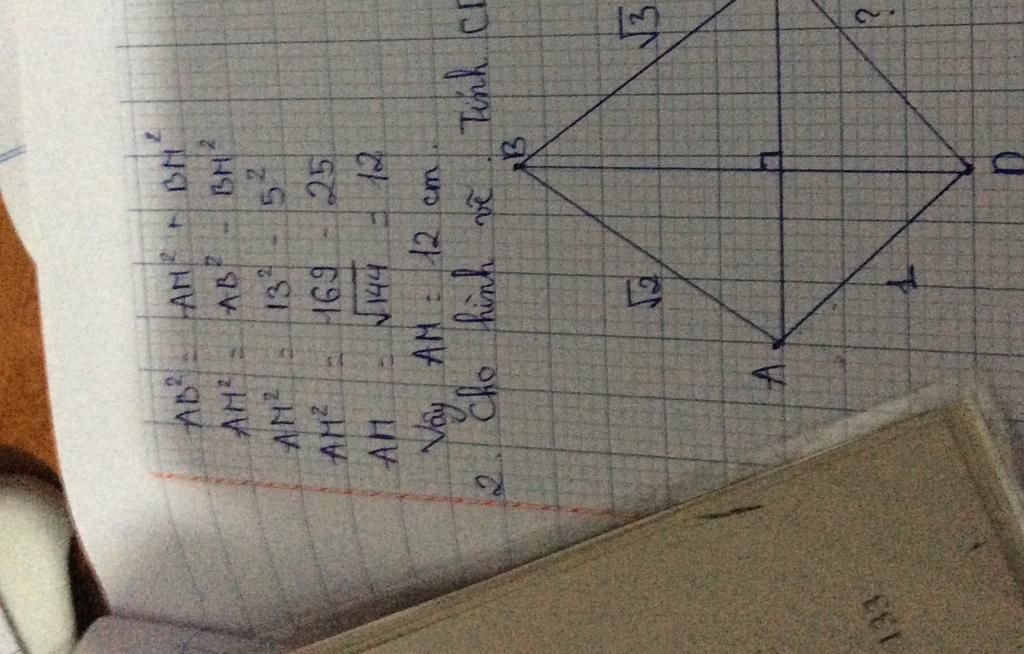 AB² = AM² + BM²
AM² = AB² - BM²
AM² = 13² - 5²
AM² = 169 - 25
AM = √144 = 12
Vậy AM = 12 cm.
2. Cho hình vẽ. Tính
B
√2
√3
A
1
?
D